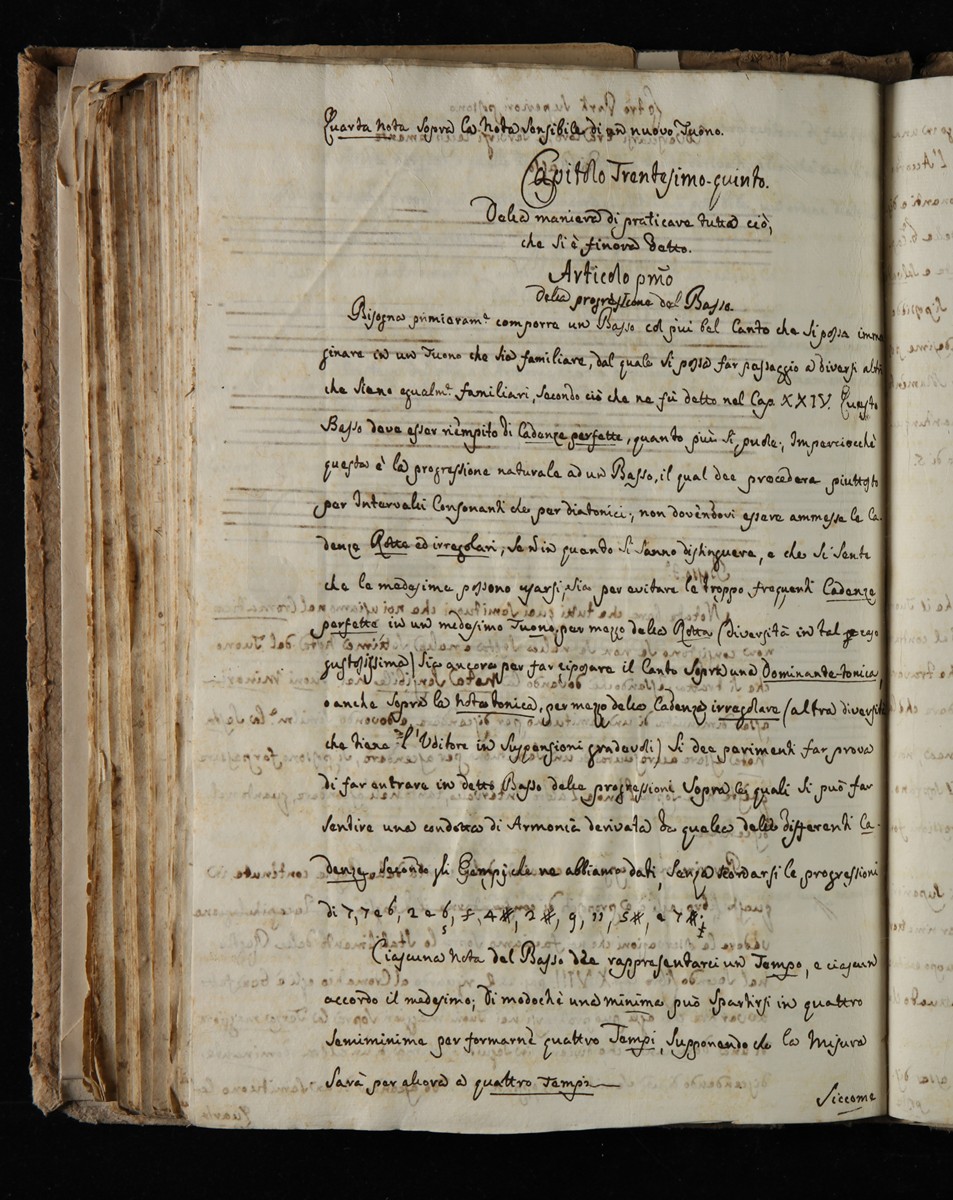 Quarta Nota sopra la Nota sensibile di un nuovo Tuono.
Capitolo Trentesimo-quinto.
Della maniera di praticare tutto ciò,
che si è finora detto.
Articolo pmo
Della progressione del Basso.
Bisogna primieramte comporre un Basso col più bel Canto che si possa imma
ginare in un Tuono che sia familiare, dal quale si possa far passaggio a diversi altri
che siano egualmte familiari, secondo ciò che ne fù detto nel Cap. XXIV. Questo
Basso deve esser riempito di Cadenze perfette, quanto più si puole; Imperciocchè
questa è la progressione naturale ad un Basso, il qual dee procedere piuttosto
per Intervalli Consonanti che per diatonici; non dovendovi essere ammesse le Ca-
denze Rotte ed irregolari, se non in quanto si sanno distinguere, e che si sente
che le medesime possono usarsi, sia per evitare le troppo frequenti Cadenze
perfette in un medesimo Tuono, per mezzo della Rotta (diversità in tal caso
gustosissima) sia ancora per far riposare il Canto sopra una Dominante-tonica,
o anche sopra la Nota tonica, per mezzo della Cadenza irregolare (altra diversità
che tiene l'Uditore in Suspensioni gradevoli) Si dee parimenti far prova
di far entrare in detto Basso delle progressioni sopra le quali si può far
sentire una condotta di Armonia derivata da qualche delle differenti Ca-
denze, secondo gli Esempj che ne abbiamo dati, senza scordarsi le progressioni
di 7, 7 e 6, 2 e 6/5, 4#, 2#, 9, 11, 5#, e 7#.
Ciascuna Nota del Basso dee rappresentarci un Tempo, e ciascun
accordo il medesimo; Di modochè una minima può spartirsi in quattro
semiminime per formarne quattro Tempi, supponendo che la Misura
Sarà per allora a quattro Tempi
Siccome